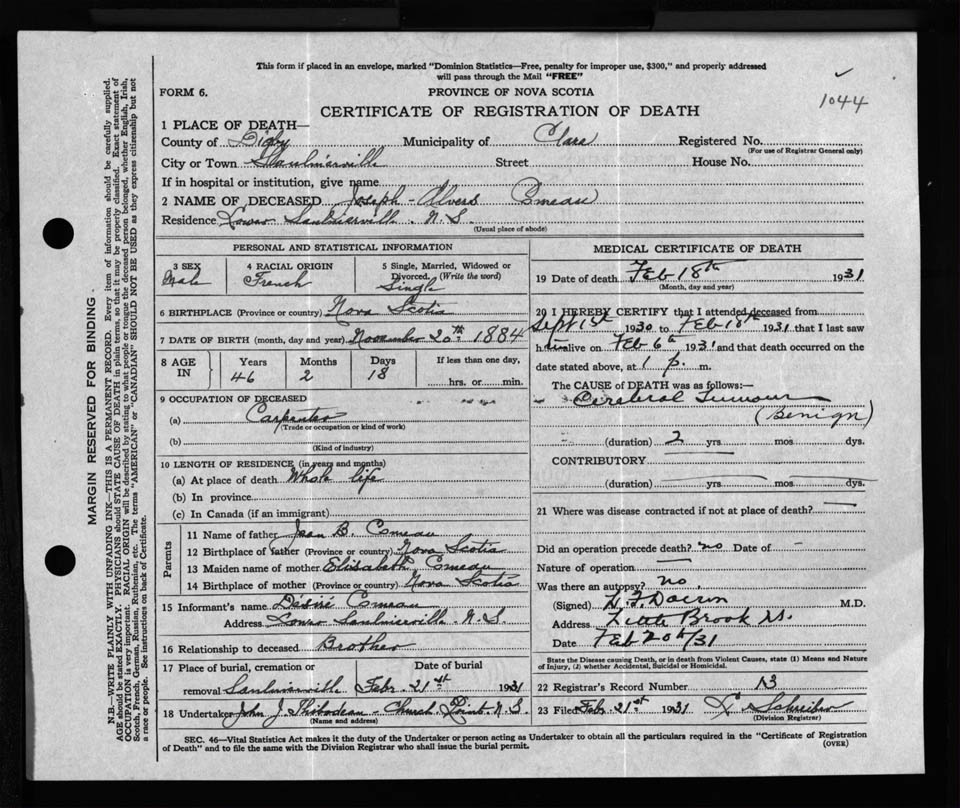 This form if placed in an envelope, marked "Dominion Statistics—Free, penalty for improper use, $300," and properly addressed
will pass through the Mail "FREE"
FORM 6.
PROVINCE OF NOVA SCOTIA
1044
CERTIFICATE OF REGISTRATION OF DEATH
1 PLACE OF DEATH—
County of Digby Municipality of Clare Registered No.
(For use of Registrar General only)
City or Town Saulnierville Street House No.
If in hospital or institution, give name
2 NAME OF DECEASED Joseph Comeau
Residence Lower Saulnierville N.S.
(Usual place of abode)
PERSONAL AND STATISTICAL INFORMATION
3 SEX
Male
4 RACIAL ORIGIN
French
5 Single, Married, Widowed or
Divorced. (Write the word)
Single
6 BIRTHPLACE (Province or country) Nova Scotia
7 DATE OF BIRTH (month, day and year) November 20th 1884
8 AGE
IN
Years
46
Months
2
Days
18
If less than one day,
hrs. or min.
9 OCCUPATION OF DECEASED
(a) Carpenter
(Trade or occupation or kind of work)
(b)
(Kind of industry)
10 LENGTH OF RESIDENCE (in years and months)
(a) At place of death Whole life
(b) In province
(c) In Canada (if an immigrant)
Parents
11 Name of father Jean B. Comeau
12 Birthplace of father (Province or country) Nova Scotia
13 Maiden name of mother Elisabeth Comeau
14 Birthplace of mother (Province or country) Nova Scotia
15 Informant's name Désiré Comeau
Address Lower Saulnierville N.S.
16 Relationship to deceased Brother
17 Place of burial, cremation or Date of burial
removal Saulnierville Febr. 21st 1931
18 Undertaker John J Thibodeau - Church Point N.S.
(Name and address)
MEDICAL CERTIFICATE OF DEATH
19 Date of death Feb 18th 1931
(Month, day and year)
20 I HEREBY CERTIFY that I attended deceased from
Sept 1st 1930 to Feb 18th 1931 that I last saw
him alive on Feb 6th 1931 and that death occurred on the
date stated above, at 1 p. m.
The CAUSE of DEATH was as follows:—
Cerebral Tumour
(Benign)
(duration) 2 yrs. mos. dys.
CONTRIBUTORY
(duration) yrs. mos. dys.
21 Where was disease contracted if not at place of death?
Did an operation precede death? no Date of -
Nature of operation
Was there an autopsy? no.
(Signed) M.D.
Address Little Brook
Date Feb 20th/31
State the Disease causing Death, or in death from Violent Causes, state (1) Means and Nature
of Injury, (2) whether Accidental, Suicidal or Homicidal.
22 Registrar's Record Number 13
23 Filed Feb. 21st 1931 Schreiber
(Division Registrar)
SEC. 46—Vital Statistics Act makes it the duty of the Undertaker or person acting as Undertaker to obtain all the particulars required in the "Certificate of Registration
of Death" and to file the same with the Division Registrar who shall issue the burial permit.
(OVER)
MARGIN RESERVED FOR BINDING
N.B.—WRITE PLAINLY WITH UNFADING INK—THIS IS A PERMANENT RECORD. Every item of information should be carefully supplied.
AGE should be stated EXACTLY. PHYSICIANS should STATE CAUSE OF DEATH in plain terms, so that it may be properly classified. Exact statement of
OCCUPATION is very important. RACIAL ORIGIN will be described by stating to what people or tongue the deceased person belonged, whether English, Irish,
Scotch, French, German, Russian, Ruthenian, etc. The terms "AMERICAN" or "CANADIAN" SHOULD NOT BE USED as they express citizenship but not
a race or people. See instructions on back of Certificate.